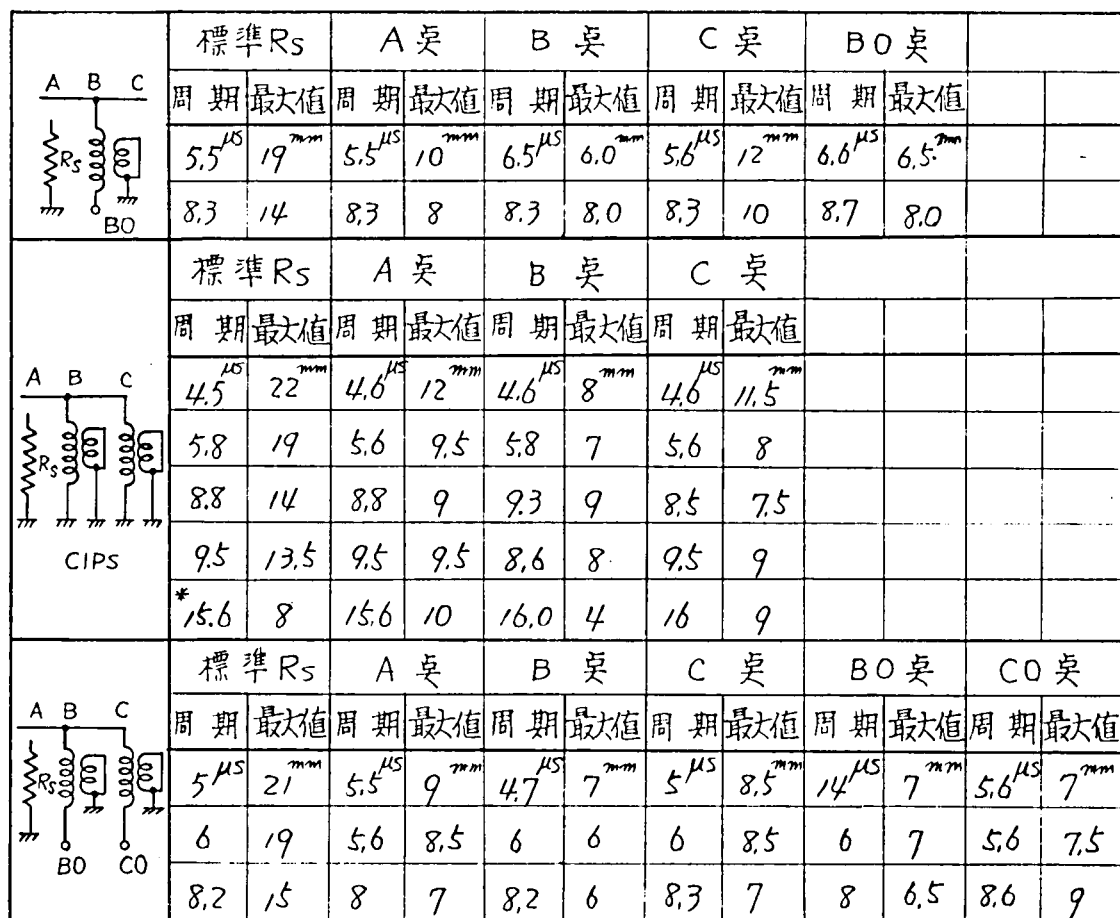 標準Rs A奌 B奌 C奌 BO奌
A B C 周期 最大値 周期 最大値 周期 最大値 周期 最大値 周期 最大値
Rs 5.5μs 19mm 5.5μs 10mm 6.5μs 6.0mm 5.6μs 12mm 6.6μs 6.5mm
BO 8.3 14 8.3 8 8.3 8.0 8.3 10 8.7 8.0
標準Rs A奌 B奌 C奌
周期 最大値 周期 最大値 周期 最大値 周期 最大値
A B C 4.5μs 22mm 4.6μs 12mm 4.6μs 8mm 4.6μs 11.5mm
Rs 5.8 19 5.6 9.5 5.8 7 5.6 8
8.8 14 8.8 9 9.3 9 8.5 7.5
CIPS 9.5 13.5 9.5 9.5 8.6 8 9.5 9
*15.6 8 15.6 10 16.0 4 16 9
標準Rs A奌 B奌 C奌 BO奌 CO奌
A B C 周期 最大値 周期 最大値 周期 最大値 周期 最大値 周期 最大値 周期 最大値
Rs 5μs 21mm 5.5μs 9mm 4.7μs 7mm 5μs 8.5mm 14μs 7mm 5.6μs 7mm
BO CO 6 19 5.6 8.5 6 6 6 8.5 6 7 5.6 7.5
8.2 15 8 7 8.2 6 8.3 7 8 6.5 8.6 9